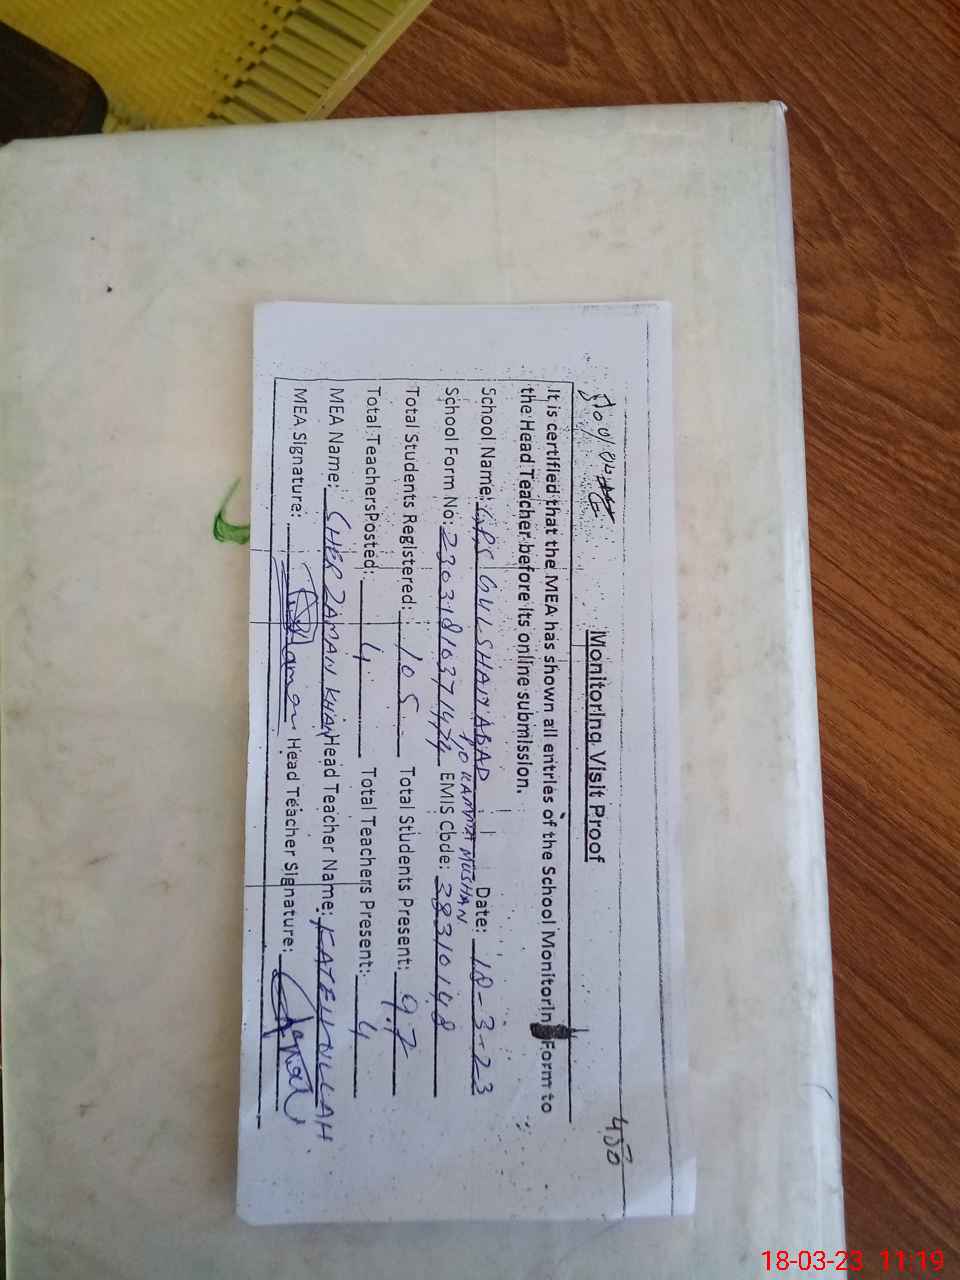 450
Monitoring Visit Proof
It is certified that the MEA has shown all entries of the School Monitorin Form to
the Head Teacher before its online submission.
School Name: GPS GULSHANABAD Date: 18-3-23
P/O KAMMA MUSHAN
School Form No: EMIS Cbde: 38310148
Total Students Registered: 105 Total Students Present: 97
Total TeachersPosted: 4 Total Teachers Present: 4
MEA Name: SHER ZAMAN KHAN Head Teacher Name:
MEA Signature: Head Teacher Signature:
18-03-23 11:19